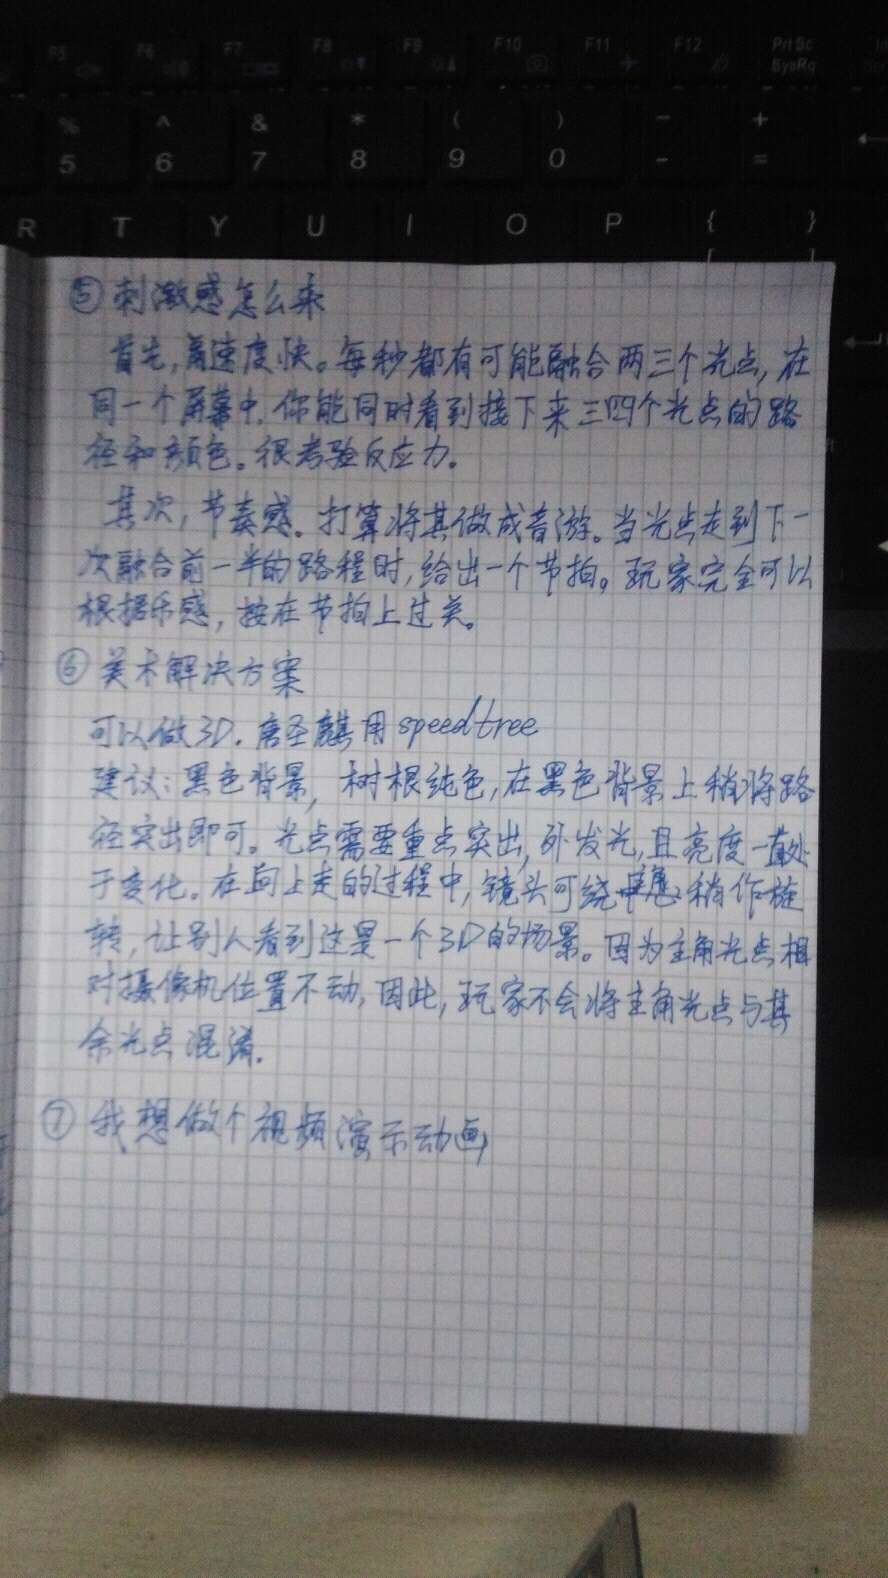 F5 F6 F7 F8 F9 F10 F11 F12 Prt Sc
SysRq
% ^ & * ( ) _ +
5 6 7 8 9 0 - =
R T Y U I O P { }
⑤ 刺激感怎么来
首先,高速度快。每秒都有可能融合两三个光点,在
同一个屏幕中,你能同时看到接下来三四个光点的路
径和颜色。很考验反应力。
其次,节奏感。打算将其做成音游。当光点走到下一
次融合前一半的路程时,给出一个节拍。玩家完全可以
根据乐感,按在节拍上过关。
⑥ 美术解决方案
可以做3D.唐圣麒用speedtree
建议:黑色背景,树根纯色,在黑色背景上稍将路
径突出即可。光点需要重点突出,外发光,且亮度一直处
于变化。在向上走的过程中,镜头可绕 稍作旋
转,让别人看到这是一个3D的场景。因为主角光点相
对摄像机位置不动,因此,玩家不会将主角光点与其
余光点混淆.
⑦ 我想做个视频演示动画